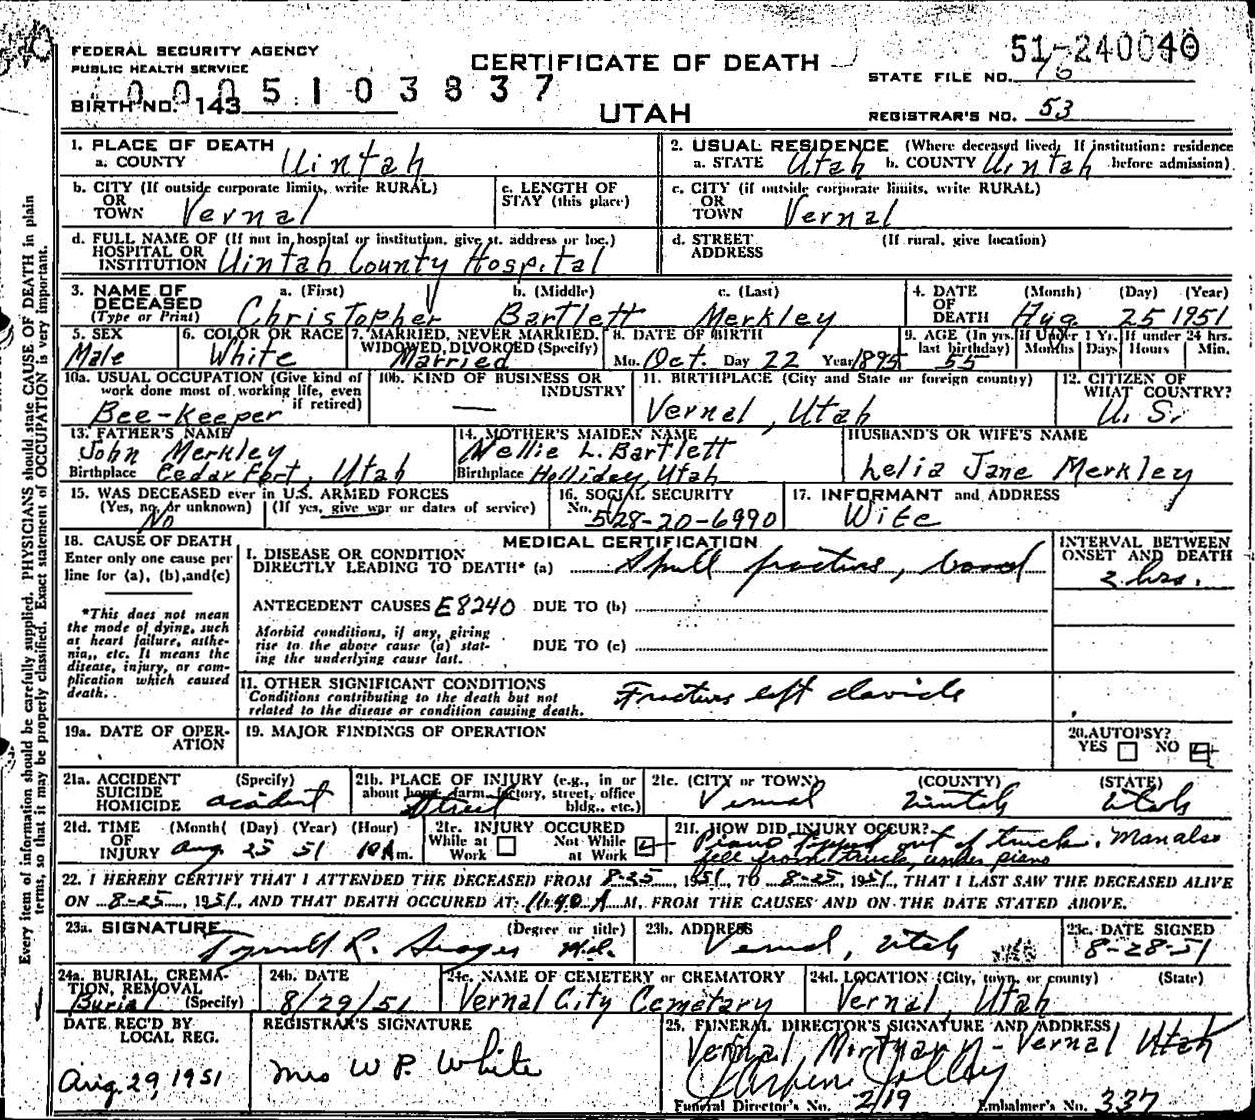 FEDERAL SECURITY AGENCY
PUBLIC HEALTH SERVICE
CERTIFICATE OF DEATH
UTAH
51-240040
STATE FILE NO. 76
0005103837
BIRTH NO. 143
REGISTRAR'S NO. 53
Every item of information should be carefully supplied. PHYSICIANS should state CAUSE OF DEATH in plain
terms, so that it may be properly classified. Exact statement of OCCUPATION is very important.
1. PLACE OF DEATH
a. COUNTY Uintah
2. USUAL RESIDENCE (Where deceased lived, If institution: residence
a. STATE Utah b. COUNTY Uintah before admission)
b. CITY (If outside corporate limits, write RURAL)
OR
TOWN Vernal
c. LENGTH OF
STAY (this place)
c. CITY (if outside corporate limits, write RURAL)
OR
TOWN Vernal
d. FULL NAME OF (If not in hospital or institution, give st. address or loc.)
HOSPITAL OR
INSTITUTION Uintah County Hospital
d. STREET (If rural, give location)
ADDRESS
3. NAME OF
DECEASED
(Type or Print)
a. (First) b. (Middle) c. (Last)
Christopher Bartlett Merkley
4. DATE (Month) (Day) (Year)
OF
DEATH Aug. 25 1951
5. SEX
Male
6. COLOR OR RACE
White
7. MARRIED, NEVER MARRIED,
WIDOWED, DIVORCED (Specify)
Married
8. DATE OF BIRTH
Mo. Oct. Day 22 Year 1895
9. AGE (In yrs. last birthday) 55
If Under 1 Yr. Months Days
If under 24 hrs. Hours Min.
10a. USUAL OCCUPATION (Give kind of
work done most of working life, even
if retired)
Bee-Keeper
10b. KIND OF BUSINESS OR
INDUSTRY
—
11. BIRTHPLACE (City and State or foreign country)
Vernal, Utah
12. CITIZEN OF
WHAT COUNTRY?
U. S.
13. FATHER'S NAME
John Merkley
Birthplace Cedar Fort, Utah
14. MOTHER'S MAIDEN NAME
Nellie L. Bartlett
Birthplace Holliday, Utah
HUSBAND'S OR WIFE'S NAME
Lelia Jane Merkley
15. WAS DECEASED ever in U.S. ARMED FORCES
(Yes, no, or unknown) (If yes, give war or dates of service)
No
16. SOCIAL SECURITY
No. 528-20-6990
17. INFORMANT and ADDRESS
Wife
18. CAUSE OF DEATH
Enter only one cause per
line for (a), (b), and (c)
*This does not mean
the mode of dying, such
as heart failure, asthe-
nia, etc. It means the
disease, injury, or com-
plication which caused
death.
MEDICAL CERTIFICATION
I. DISEASE OR CONDITION
DIRECTLY LEADING TO DEATH* (a) Skull fracture, basal
INTERVAL BETWEEN
ONSET AND DEATH
2 hrs.
ANTECEDENT CAUSES E8240 DUE TO (b)
Morbid conditions, if any, giving
rise to the above cause (a) stat-
ing the underlying cause last.
DUE TO (c)
11. OTHER SIGNIFICANT CONDITIONS
Conditions contributing to the death but not
related to the disease or condition causing death.
Fracture left clavicle
19a. DATE OF OPER-
ATION
19. MAJOR FINDINGS OF OPERATION
20. AUTOPSY?
YES NO
21a. ACCIDENT (Specify)
SUICIDE
HOMICIDE accident
21b. PLACE OF INJURY (e.g., in or
about home, farm, factory, street, office
bldg., etc.)
Street
21c. (CITY or TOWN) (COUNTY) (STATE)
Vernal Uintah Utah
21d. TIME (Month) (Day) (Year) (Hour)
OF
INJURY Aug 25 51 10 A m.
21e. INJURY OCCURED
While at Work Not While at Work
21f. HOW DID INJURY OCCUR?
Piano tipped out of truck. Man also
fell from truck, under piano
22. I HEREBY CERTIFY THAT I ATTENDED THE DECEASED FROM 8-25, 1951, TO 8-25, 1951, THAT I LAST SAW THE DECEASED ALIVE
ON 8-25, 1951, AND THAT DEATH OCCURED AT A M, FROM THE CAUSES AND ON THE DATE STATED ABOVE.
23a. SIGNATURE (Degree or title)
R. M.D.
23b. ADDRESS
Vernal, Utah
23c. DATE SIGNED
8-28-51
24a. BURIAL, CREMA-
TION, REMOVAL
(Specify)
Burial
24b. DATE
8/29/51
24c. NAME OF CEMETERY or CREMATORY
Vernal City Cemetary
24d. LOCATION (City, town, or county) (State)
Vernal, Utah
DATE REC'D BY
LOCAL REG.
Aug. 29, 1951
REGISTRAR'S SIGNATURE
Mrs W P. White
25. FUNERAL DIRECTOR'S SIGNATURE AND ADDRESS
Vernal Mortuary - Vernal Utah
Funeral Director's No. 219 Embalmer's No. 337